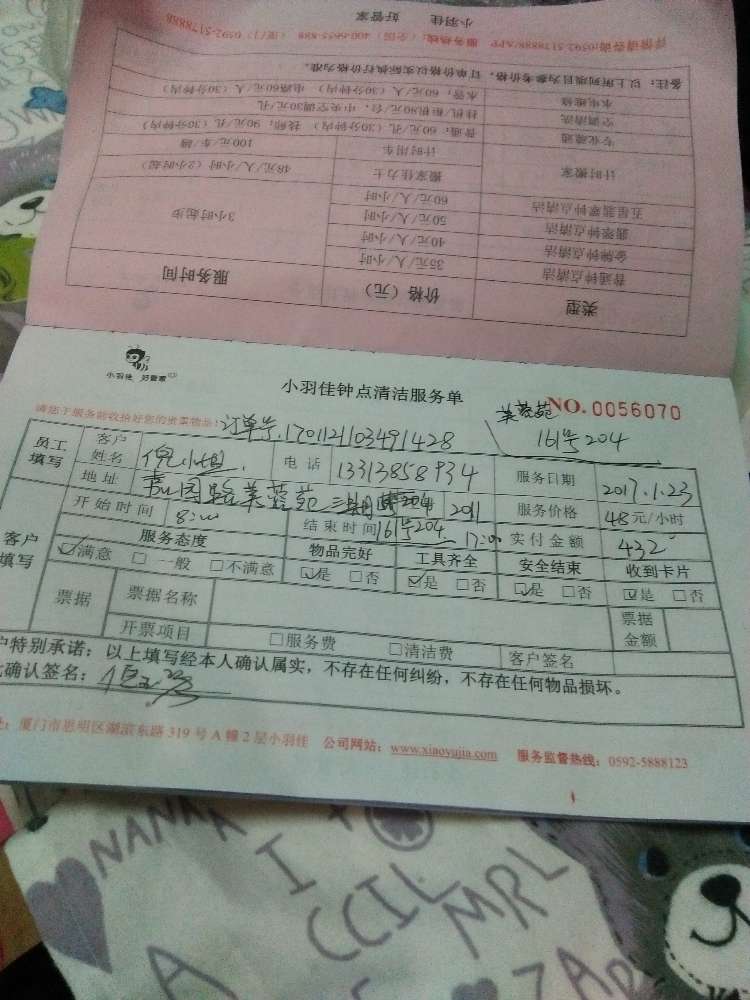 小羽佳 好管家
详情请咨询:0592-5178888/APP 服务热线：400-6655-888（全国）（厦门）0592-5178888
备注：以上所列项目为参考价格，订单价格以实际执行价格为准。
水电维修 水管：60元/人（30分钟内） 电路60元/人（30分钟内）
空调清洗 挂机/柜机80元/台，中央空调30元/孔
专业疏通 普通：60元/孔（30分钟内） 特殊：90元/孔（30分钟内）
计时搬家 计时用车 100元/车/趟
搬家佳力士 48元/人/小时（2小时起）
五星翡翠钟点清洁 60元/人/小时 3小时起步
翡翠钟点清洁 50元/人/小时
金牌钟点清洁 40元/人/小时
普通钟点清洁 35元/人/小时
类型 价格（元） 服务时间
小羽佳 好管家
小羽佳钟点清洁服务单
芙蓉苑
NO. 0056070
请您于服务前收拾好您的贵重物品！
订单号.170112103491428
161号204
员工填写 客户姓名 倪小姐 电话 13313858934 服务日期 2017.1.23
地址 嘉园路芙蓉苑 161号204 服务价格 48元/小时
客户填写 开始时间 8:00 结束时间 17:00 实付金额 432
服务态度 物品完好 工具齐全 安全结束 收到卡片
☑满意 □一般 □不满意 ☑是 □否 ☑是 □否 ☑是 □否 ☑是 □否
票据 票据名称 票据金额
开票项目 □服务费 □清洁费 客户签名
户特别承诺：以上填写经本人确认属实，不存在任何纠纷，不存在任何物品损坏。
确认签名：
址：厦门市思明区湖滨东路319号A幢2层小羽佳 公司网站：www.xiaoyujia.com 服务监督热线：0592-5888123
NANAA
I +
CCIL
MRL
A
ZAP